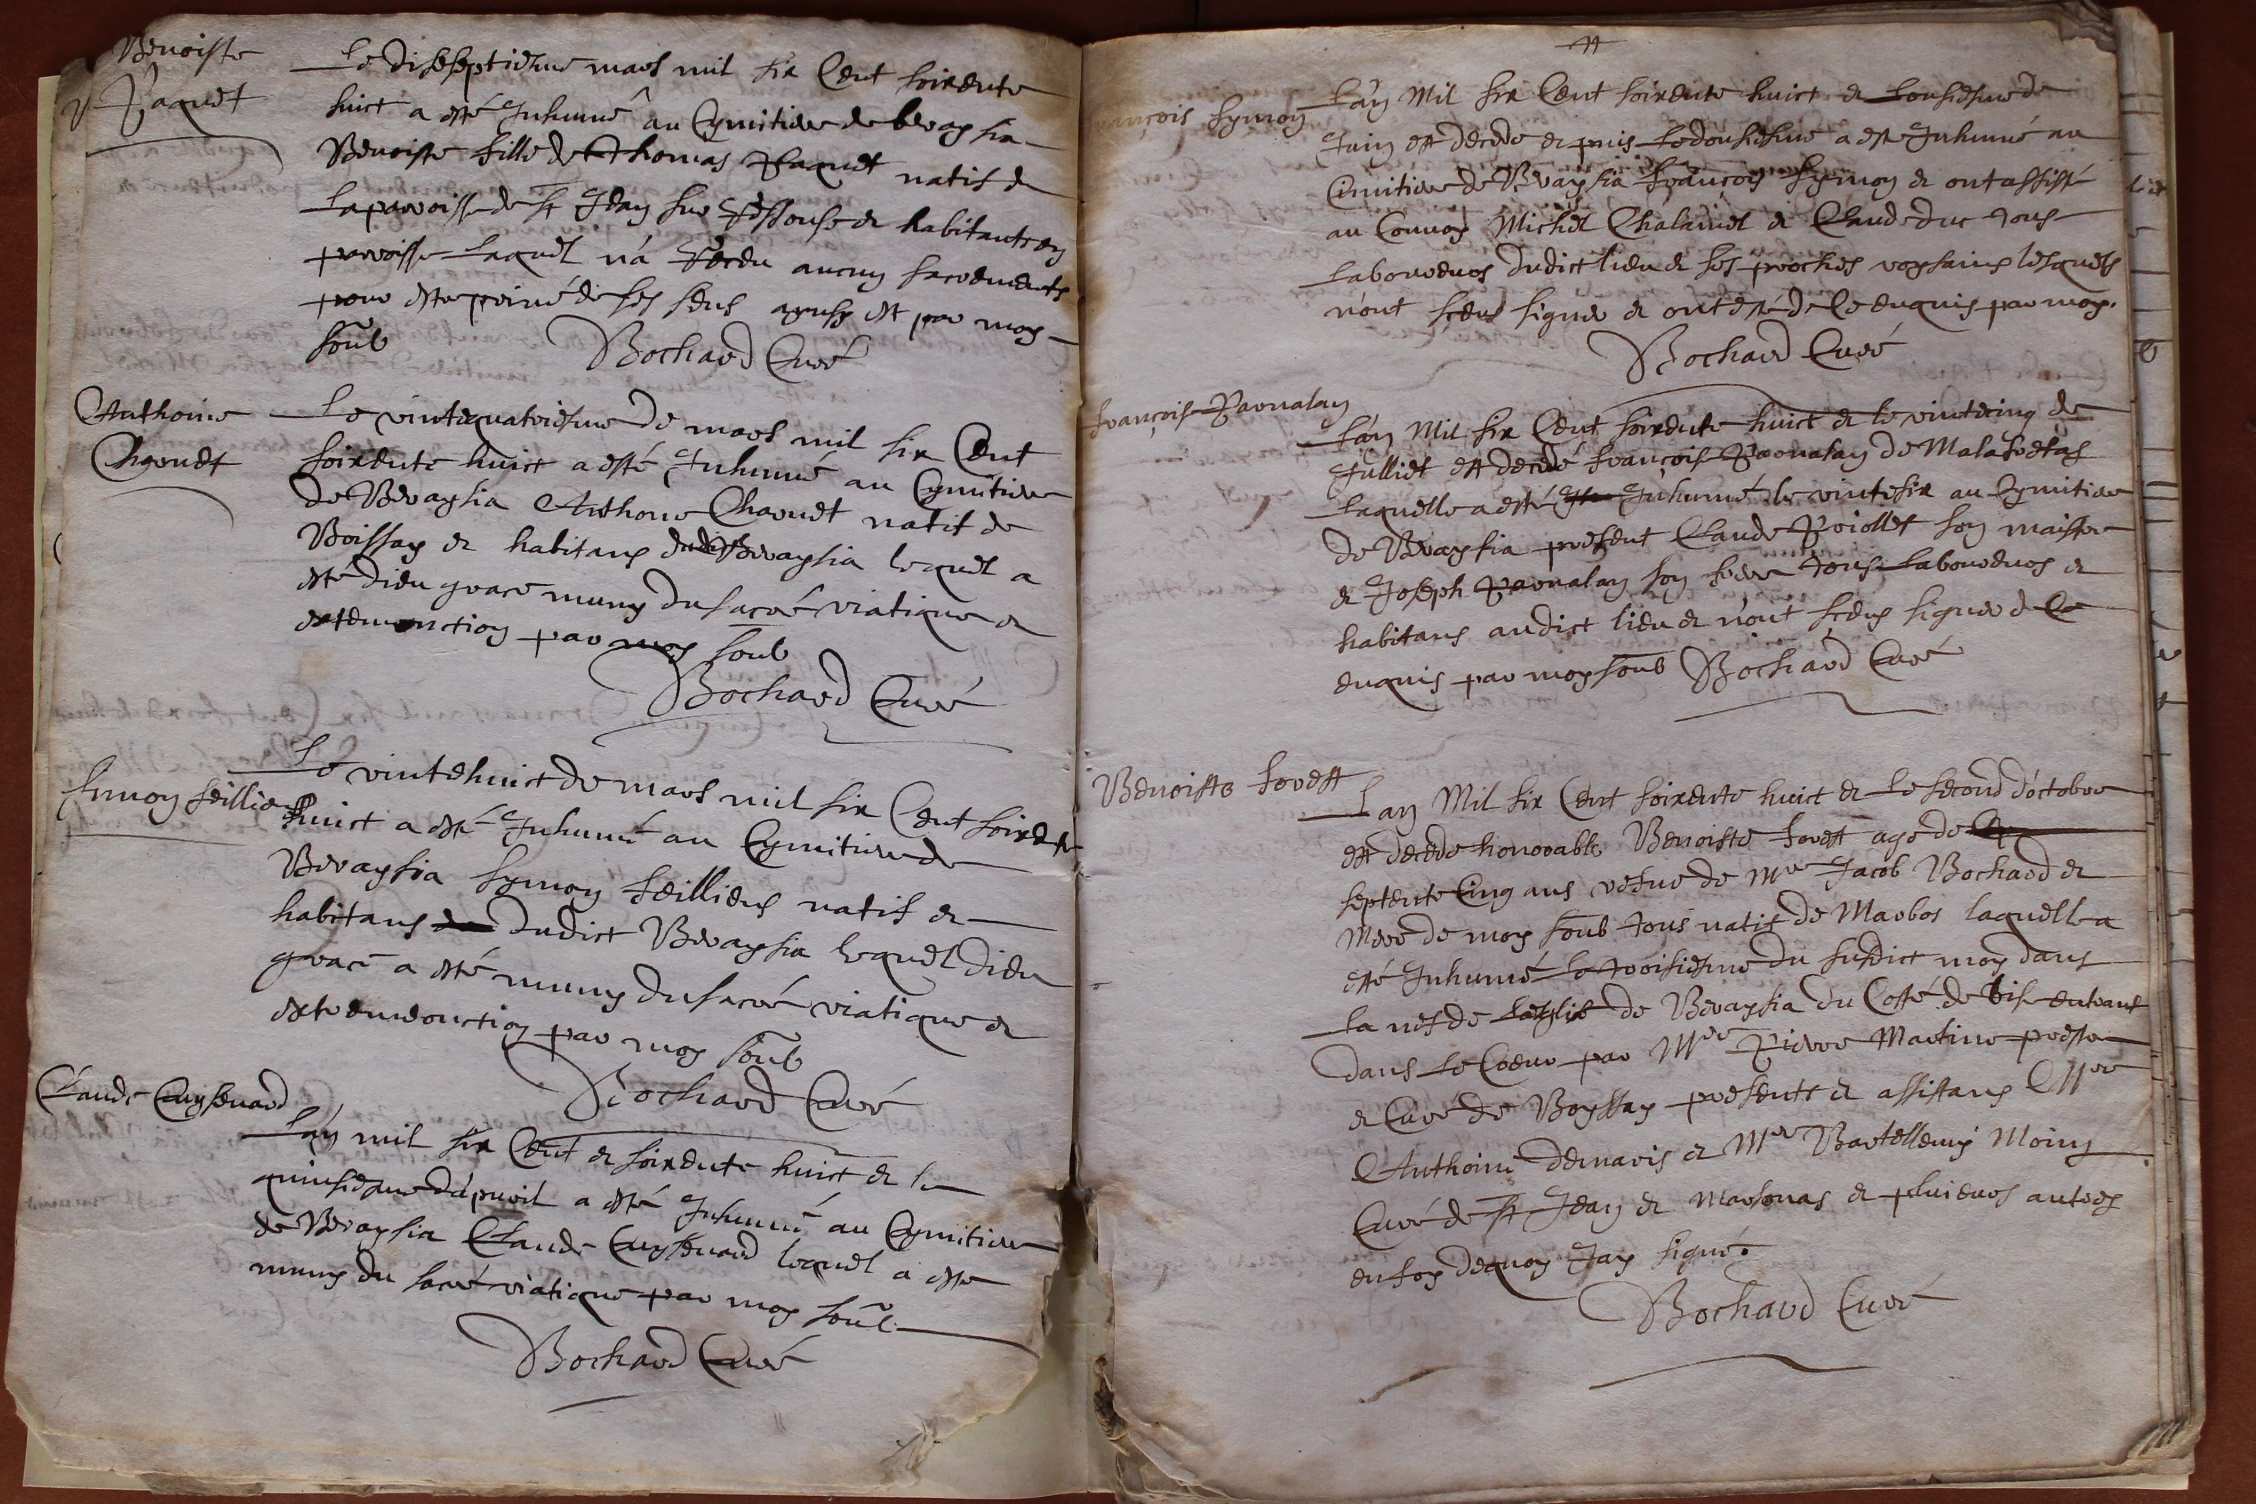 Benoiste
Paquet
Le diseseptiesme mars mil six Cent soixente
huict a esté Inhumé au Cymitiere de breaysia
Benoiste fille de Thomas Paquet natif de
la parroisse de st Jean sur Ressouse et habitant en
parroisse laquel n'a Receu aucun sacrements
pour estre privé de ses sens aynsy est par moy
soub
Bochard Curé
Anthoine
Charvet
Le vintequatriesme de mars mil six Cent
soixente huict a esté Inhumé au Cymitiere
de Breaysia Anthoine Charvet natif de
Boissay et habitans dudict Breaysia lequel a
esté dieu grace muny du sacré viatique et
extremonction par moy soub
Bochard Curé
Symon feilliens
Le vintehuict de mars mil six Cent soixente
huict a esté Inhumé au Cymitiere de
Breaysia Symon feilliens natif et
habitans dudict Breaysia lequel dieu
grace a esté muny du sacré viatique et
extremeonction par moy soub
Bochard Curé
Claude Cuysenard
L'an mil six Cent et soixente huict et le
quinsiesme d'apvril a esté Inhumé au Cymitiere
de Breaysia Claude Cuysenard lequel a este
muny du sacré viatique par moy soub
Bochard Curé
françois Symon
L'an Mil six Cent soixente huict et l'onsiesme de
Juin est decede et puis le dousiesme a este Inhumé au
Cimitiere de Breaysia françois Symon et ont assisté
au Convoy Michel Chalamel et Claude duc tous
laboureurs dudict lieu et ses proches voysains lesquels
n'ont sceus signer et ont esté de Ce enquis par moy.
Bochard Curé
françoise Parralan
L'an Mil six Cent soixente huict et le vintecinq de
Julliet est decedé françoise Parralan de Malafretas
laquelle a esté Inhumé le vintesix au Cymitiere
de Breaysia present Claude Poiollet son maistre
et Joseph Parralan son frere tous laboureurs et
habitans audict lieu et n'ont sceus signer de Ce
enquis par moy soub Bochard Curé
Benoiste forest
L'an Mil six Cent soixente huict et le second d'octobre
est decede honorable Benoiste forest age de
septente Cinq ans vefue de Mre Jacob Bochard et
Mere de moy soub tous natif de Marbos laquelle a
esté Inhumé le troisiesme du susdict moy dans
la nef de l'eglise de Breaysia du Costé de bise entrant
dans le Coeur par Mre Pierre Martine prestre
et Curé de Boyssay presents et assistans Mre
Anthoine demaris et Mre Bartellemy Moiny
Curé de st Jean et Marsonas et plusieurs autres
en foy dequoy Jay signé.
Bochard Curé